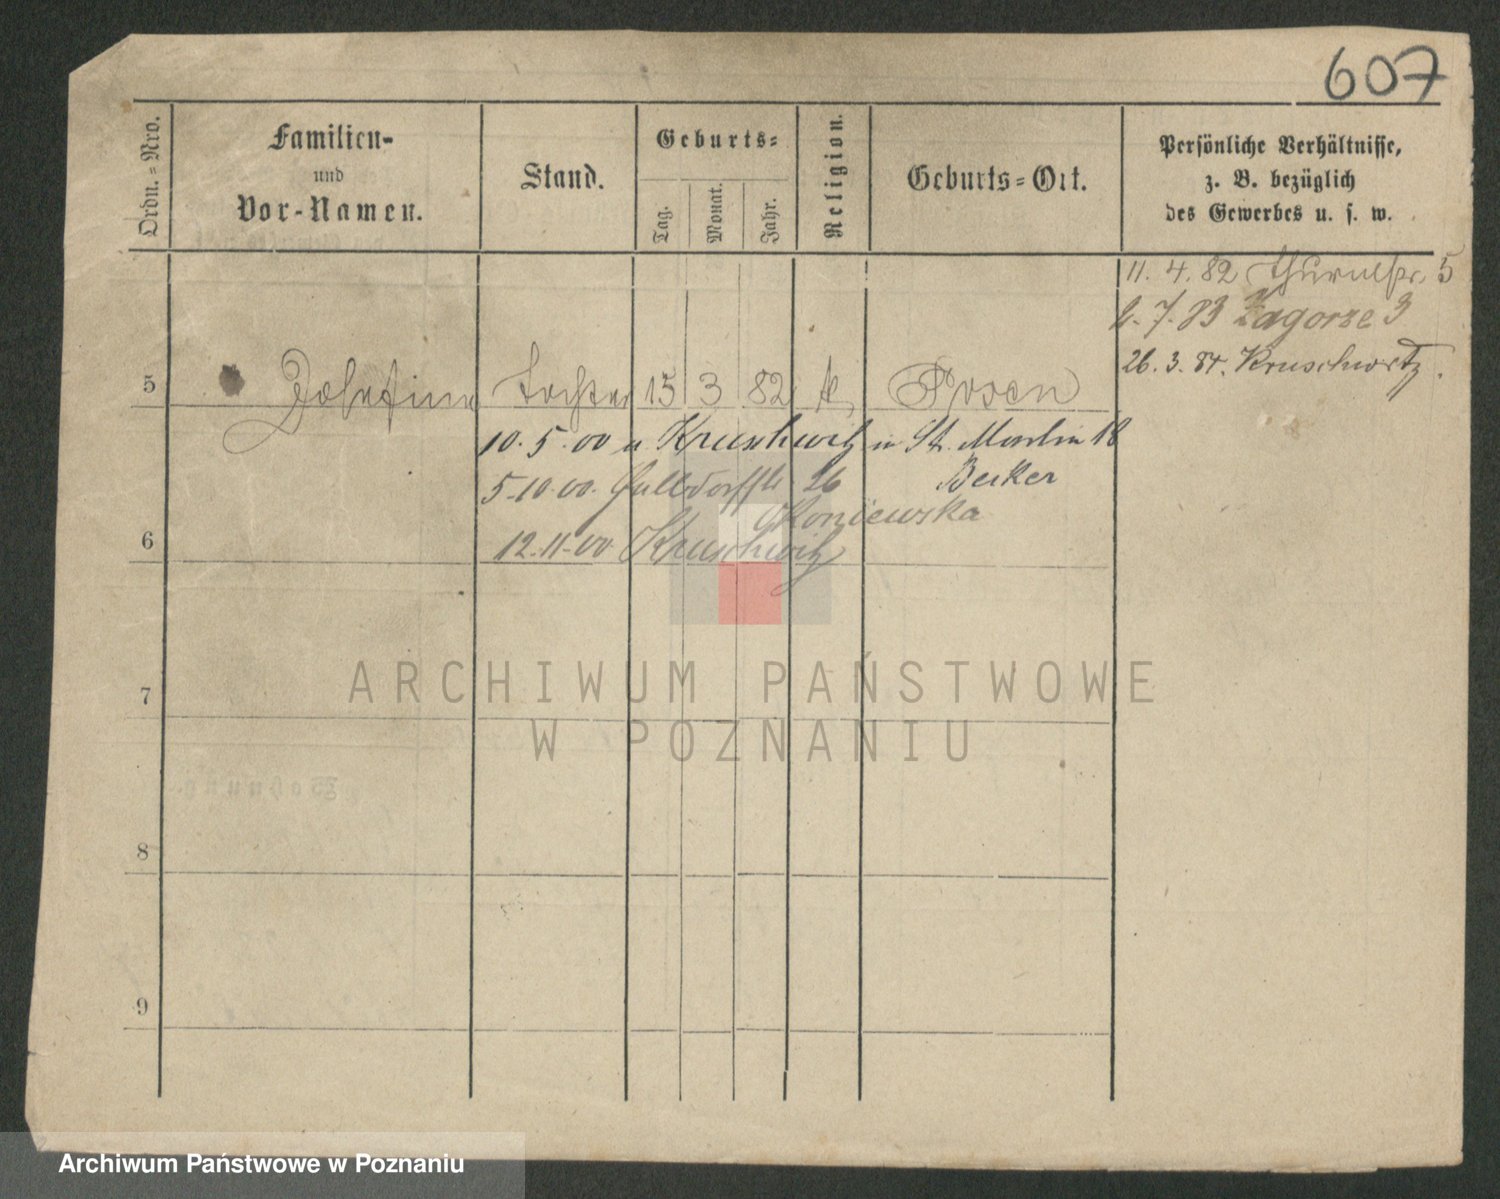 607
Ordn.-Nro.
Familien-
und
Vor-Namen.
Stand.
Geburts-
Tag.
Monat.
Jahr.
Religion.
Geburts-Ort.
Persönliche Verhältnisse,
z. B. bezüglich
des Gewerbes u. s. w.
11. 4. 82 Thurmstr. 5
2. 7. 83 Zagorze 3
26. 3. 84. Kruschwitz.
5 Josefine Tochter 15 3 82 k Posen
10. 5. 00 n Kruschwitz in St. Martin 18
5-10-00. 26 Becker
Koniewska
6 12-11-00 Kruschwitz
7
8
9
Wohnung
ARCHIWUM PAŃSTWOWE
W POZNANIU
Archiwum Państwowe w Poznaniu